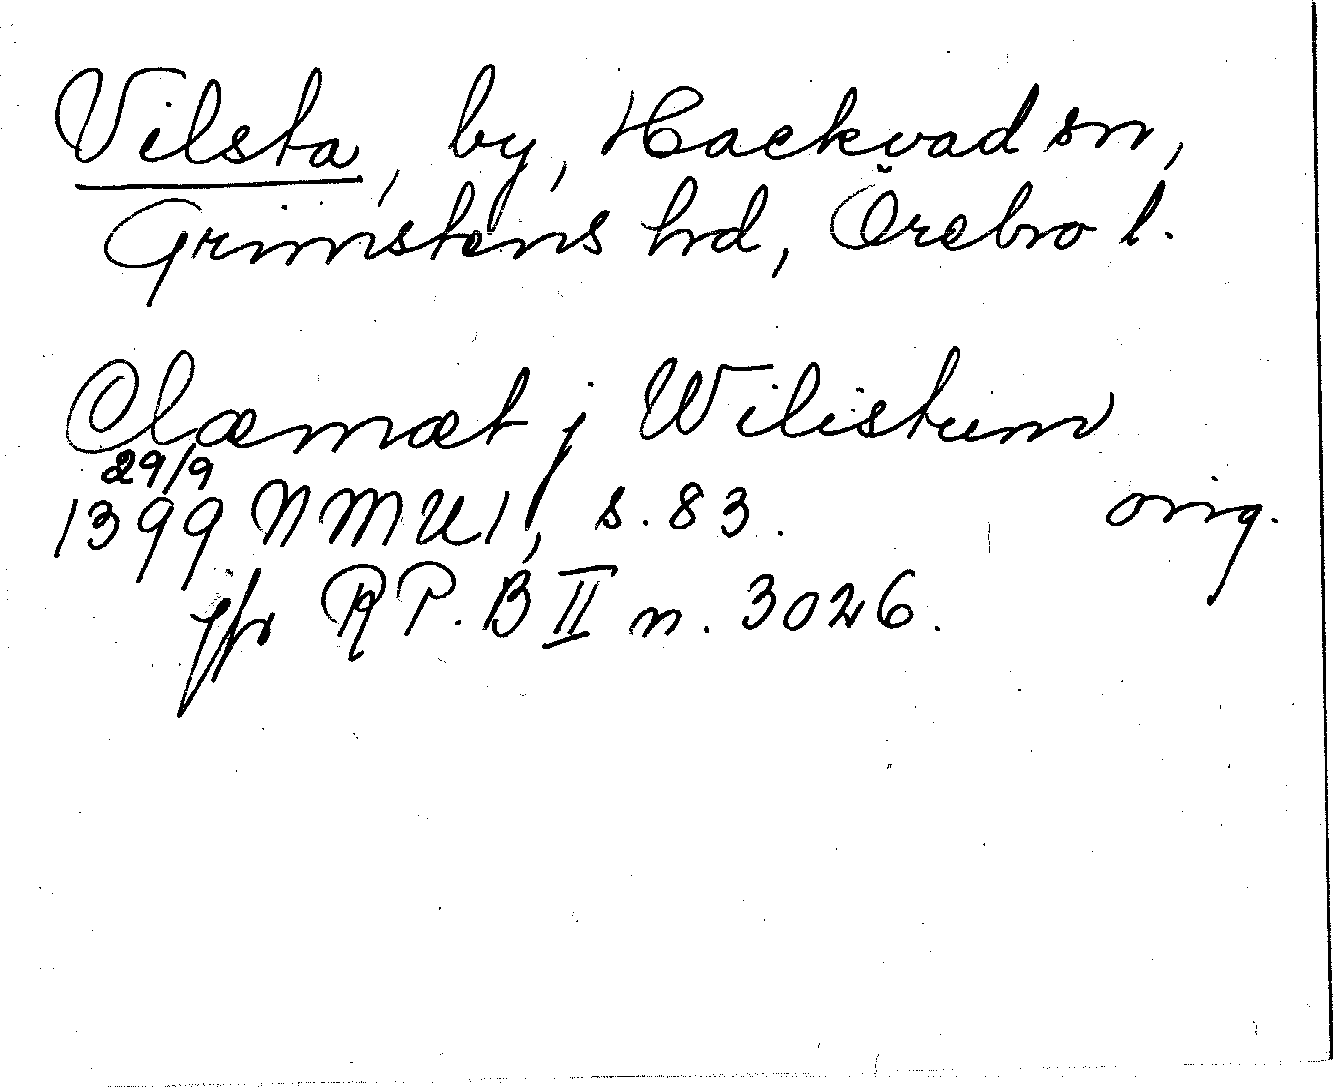 Vilsta, by, Hackvad sn,
Grimstens hd, Örebro l.
Clæmæt j Wilistum
29/9
1399 NMU 1, s. 83. orig.
jfr RP. B II n. 3026.